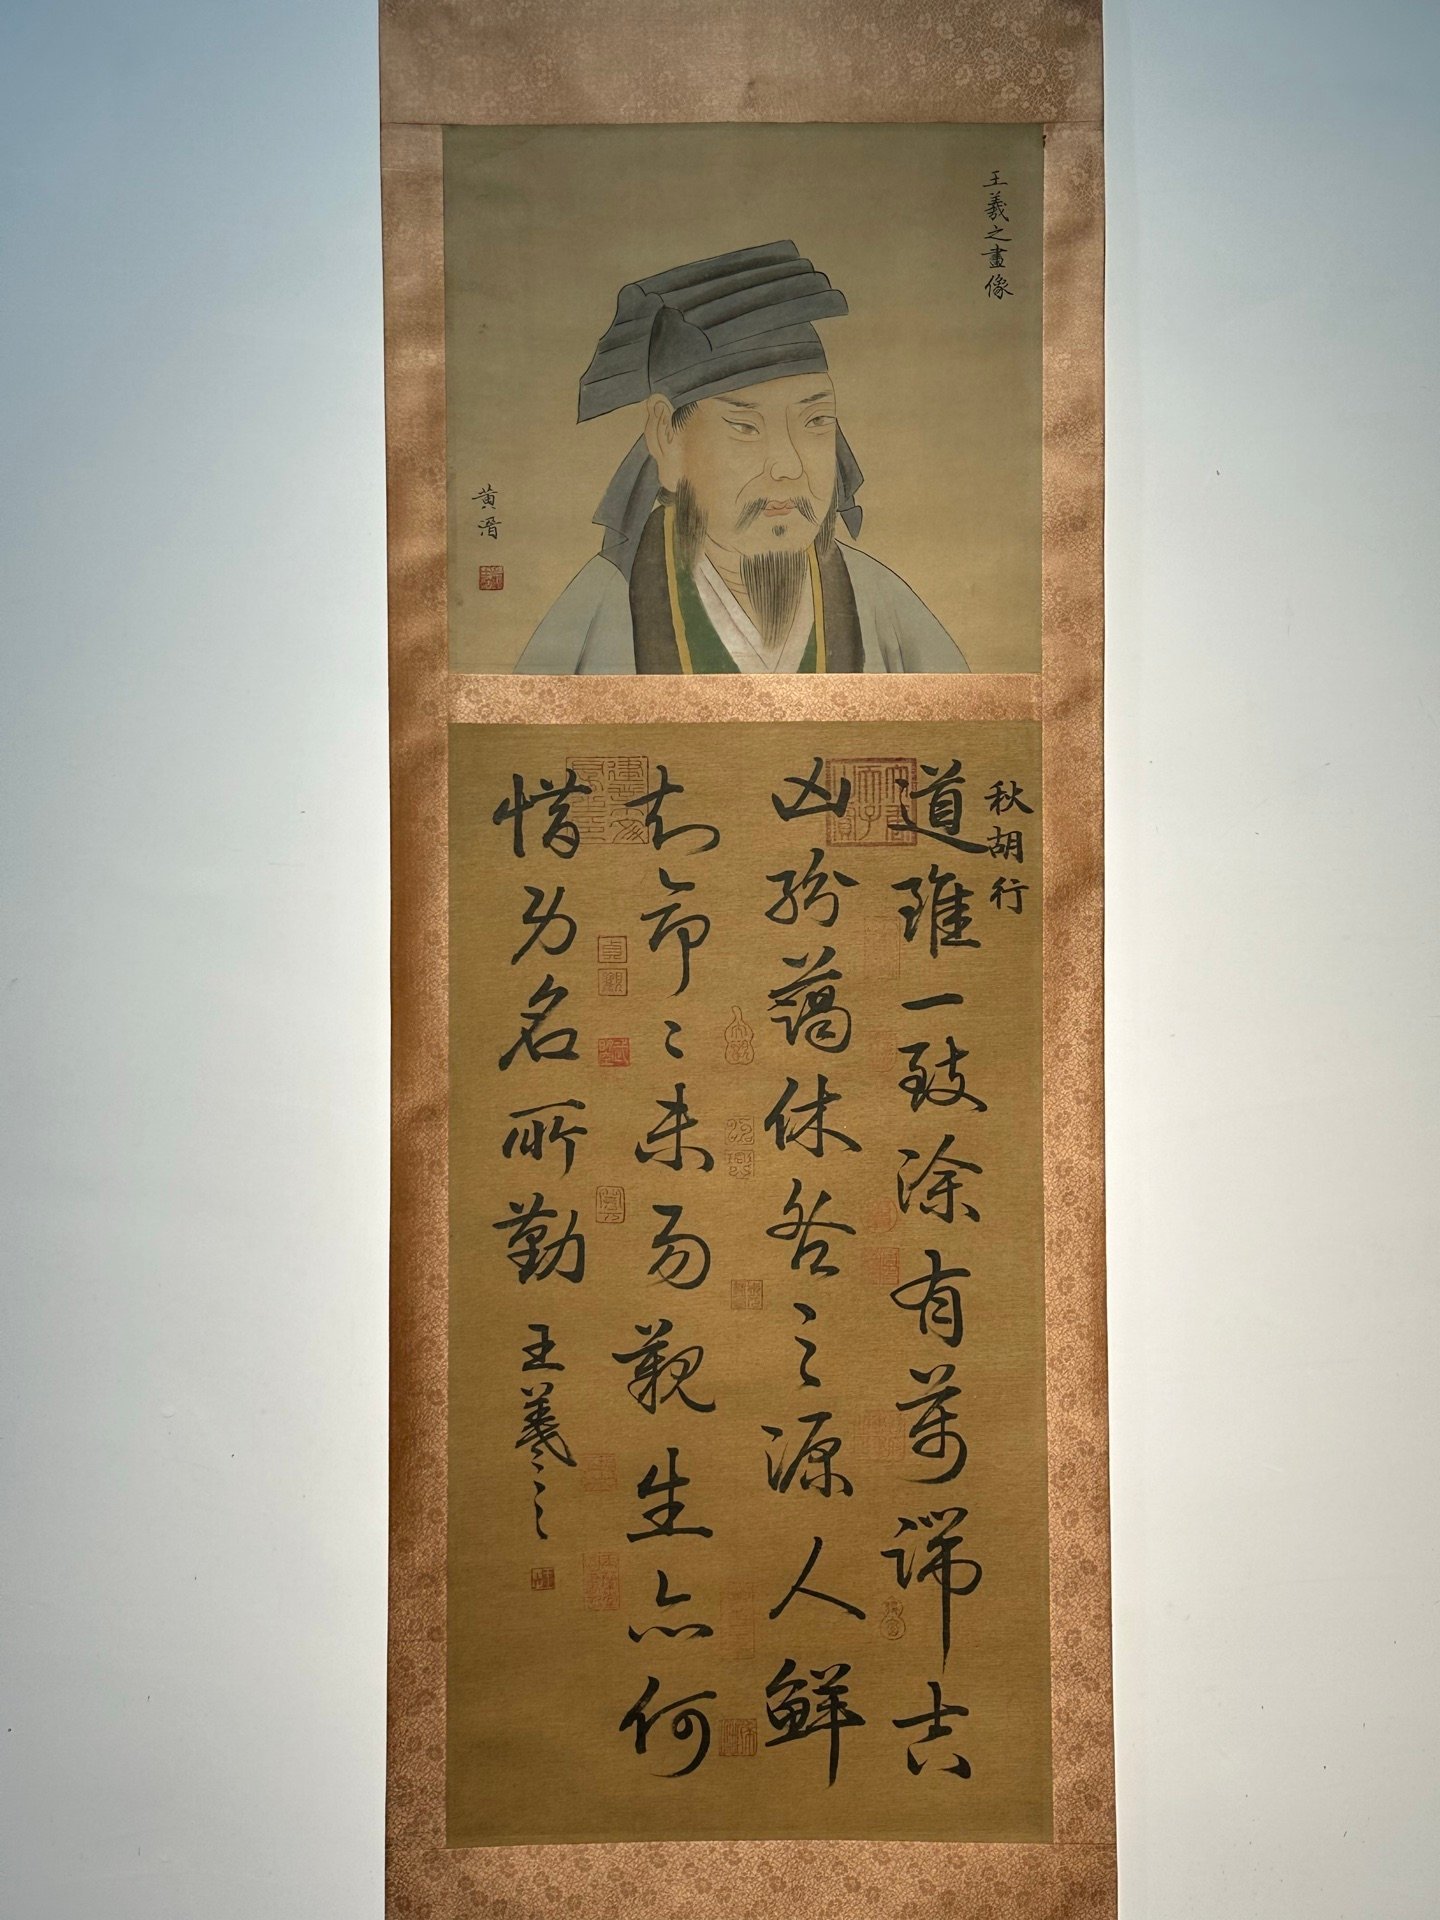 王羲之畫像
黃溍
秋胡行
道雖一致涂有萬端吉
凶紛藹休咎之源人鮮
知命〻未易觀生亦何
惜功名所勤
王羲之
貞觀